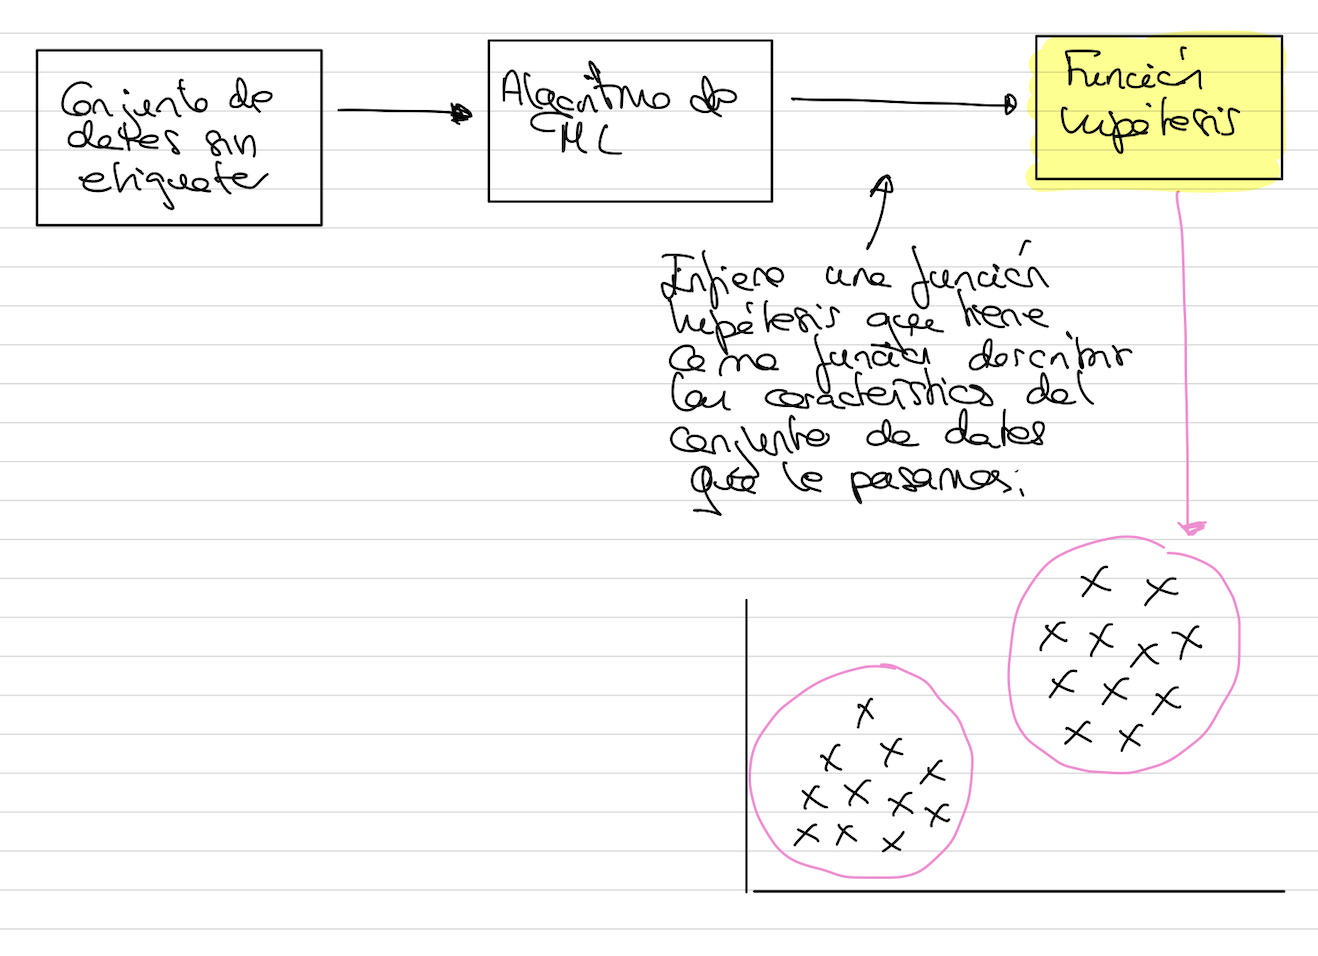 Conjunto de
datos sin
etiquetar
Algoritmo de
ML
Función
hipótesis
Infiere una función
hipótesis que tiene
como función describir
las características del
conjunto de datos
que le pasamos.